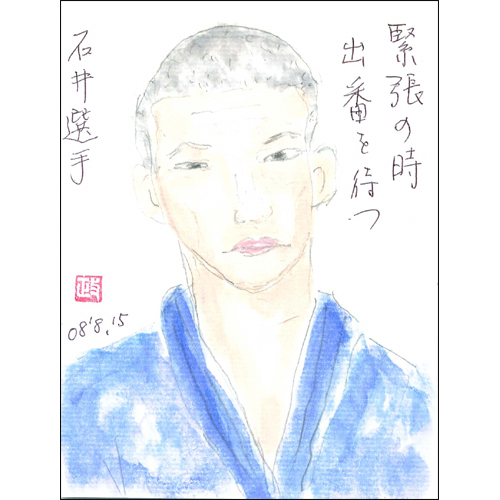 緊張の時
出番を待つ
石井選手
08'8.15